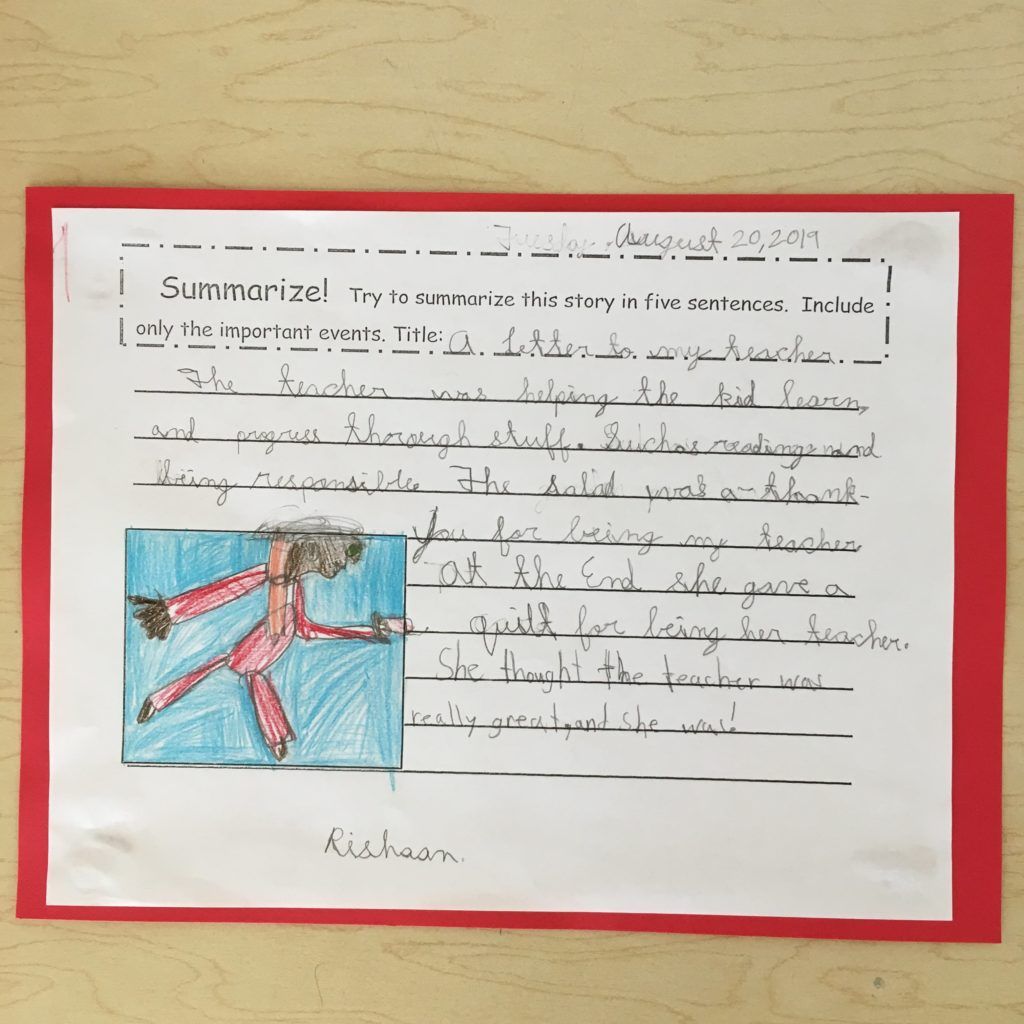 Tuesday, August 20, 2019
Summarize! Try to summarize this story in five sentences. Include
only the important events. Title: A letter to my teacher.
The teacher was helping the kid learn,
and progress through stuff. Such as reading and
being responsible. The salad was a thank-
you for being my teacher
At the End she gave a
quilt for being her teacher.
She thought the teacher was
really great, and she was!
Rishaan.